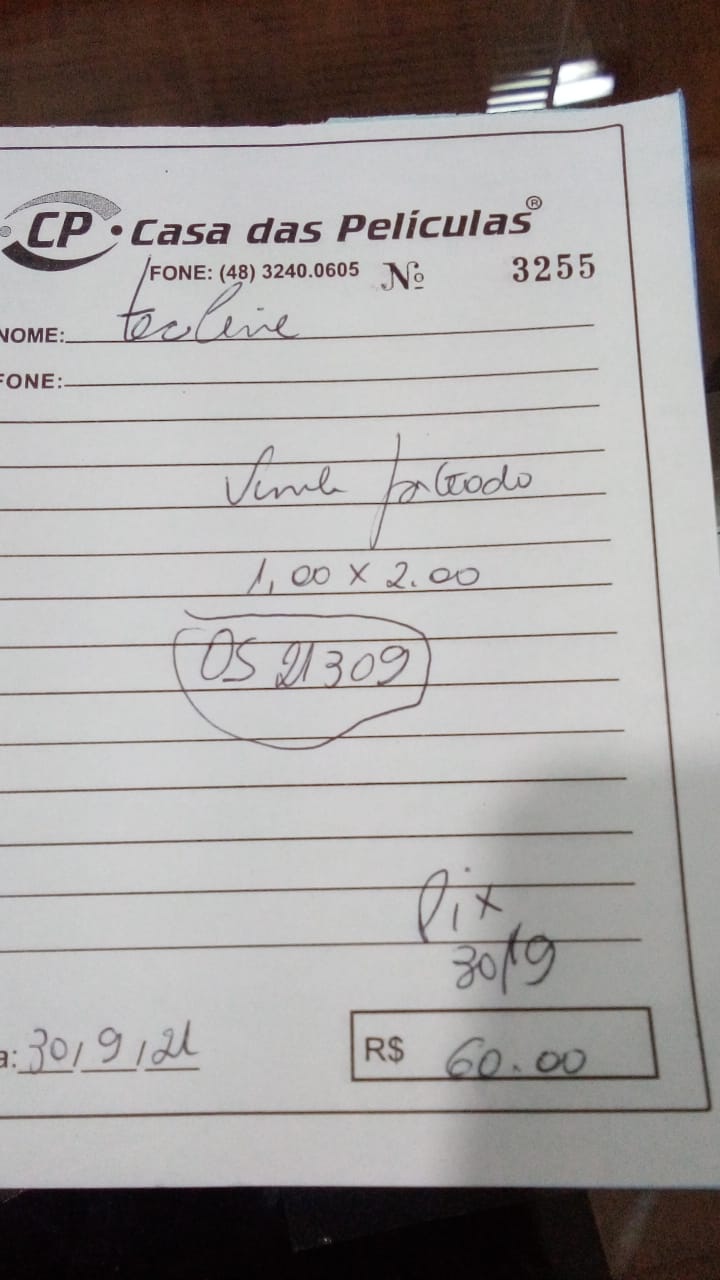 CP • Casa das Películas®
FONE: (48) 3240.0605 Nº 3255
NOME: tecline
FONE:
Vinil fosteado
1,00 x 2.00
OS 21309
Pix
30/9
a: 30/9/21
R$ 60.00